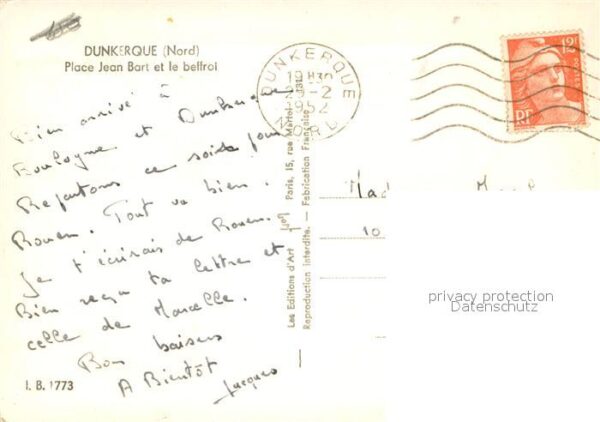 DUNKERQUE (Nord)
Place Jean Bart et le beffroi
Bien arrivé à
Boulogne et Dunkerque
Repartons ce soir pour
Rouen. Tout va bien.
Je t'écrirais de Rouen.
Bien reçu ta lettre et
celle de Marcelle.
Bons baisers
A Bientôt
Jacques
I. B. 1773
Les Editions d'Art
Paris, 15, rue
Reproduction interdite. – Fabrication Française
DUNKERQUE
19 H30
-2
1952
NORD
12F
POSTES
RF
10
privacy protection
Datenschutz